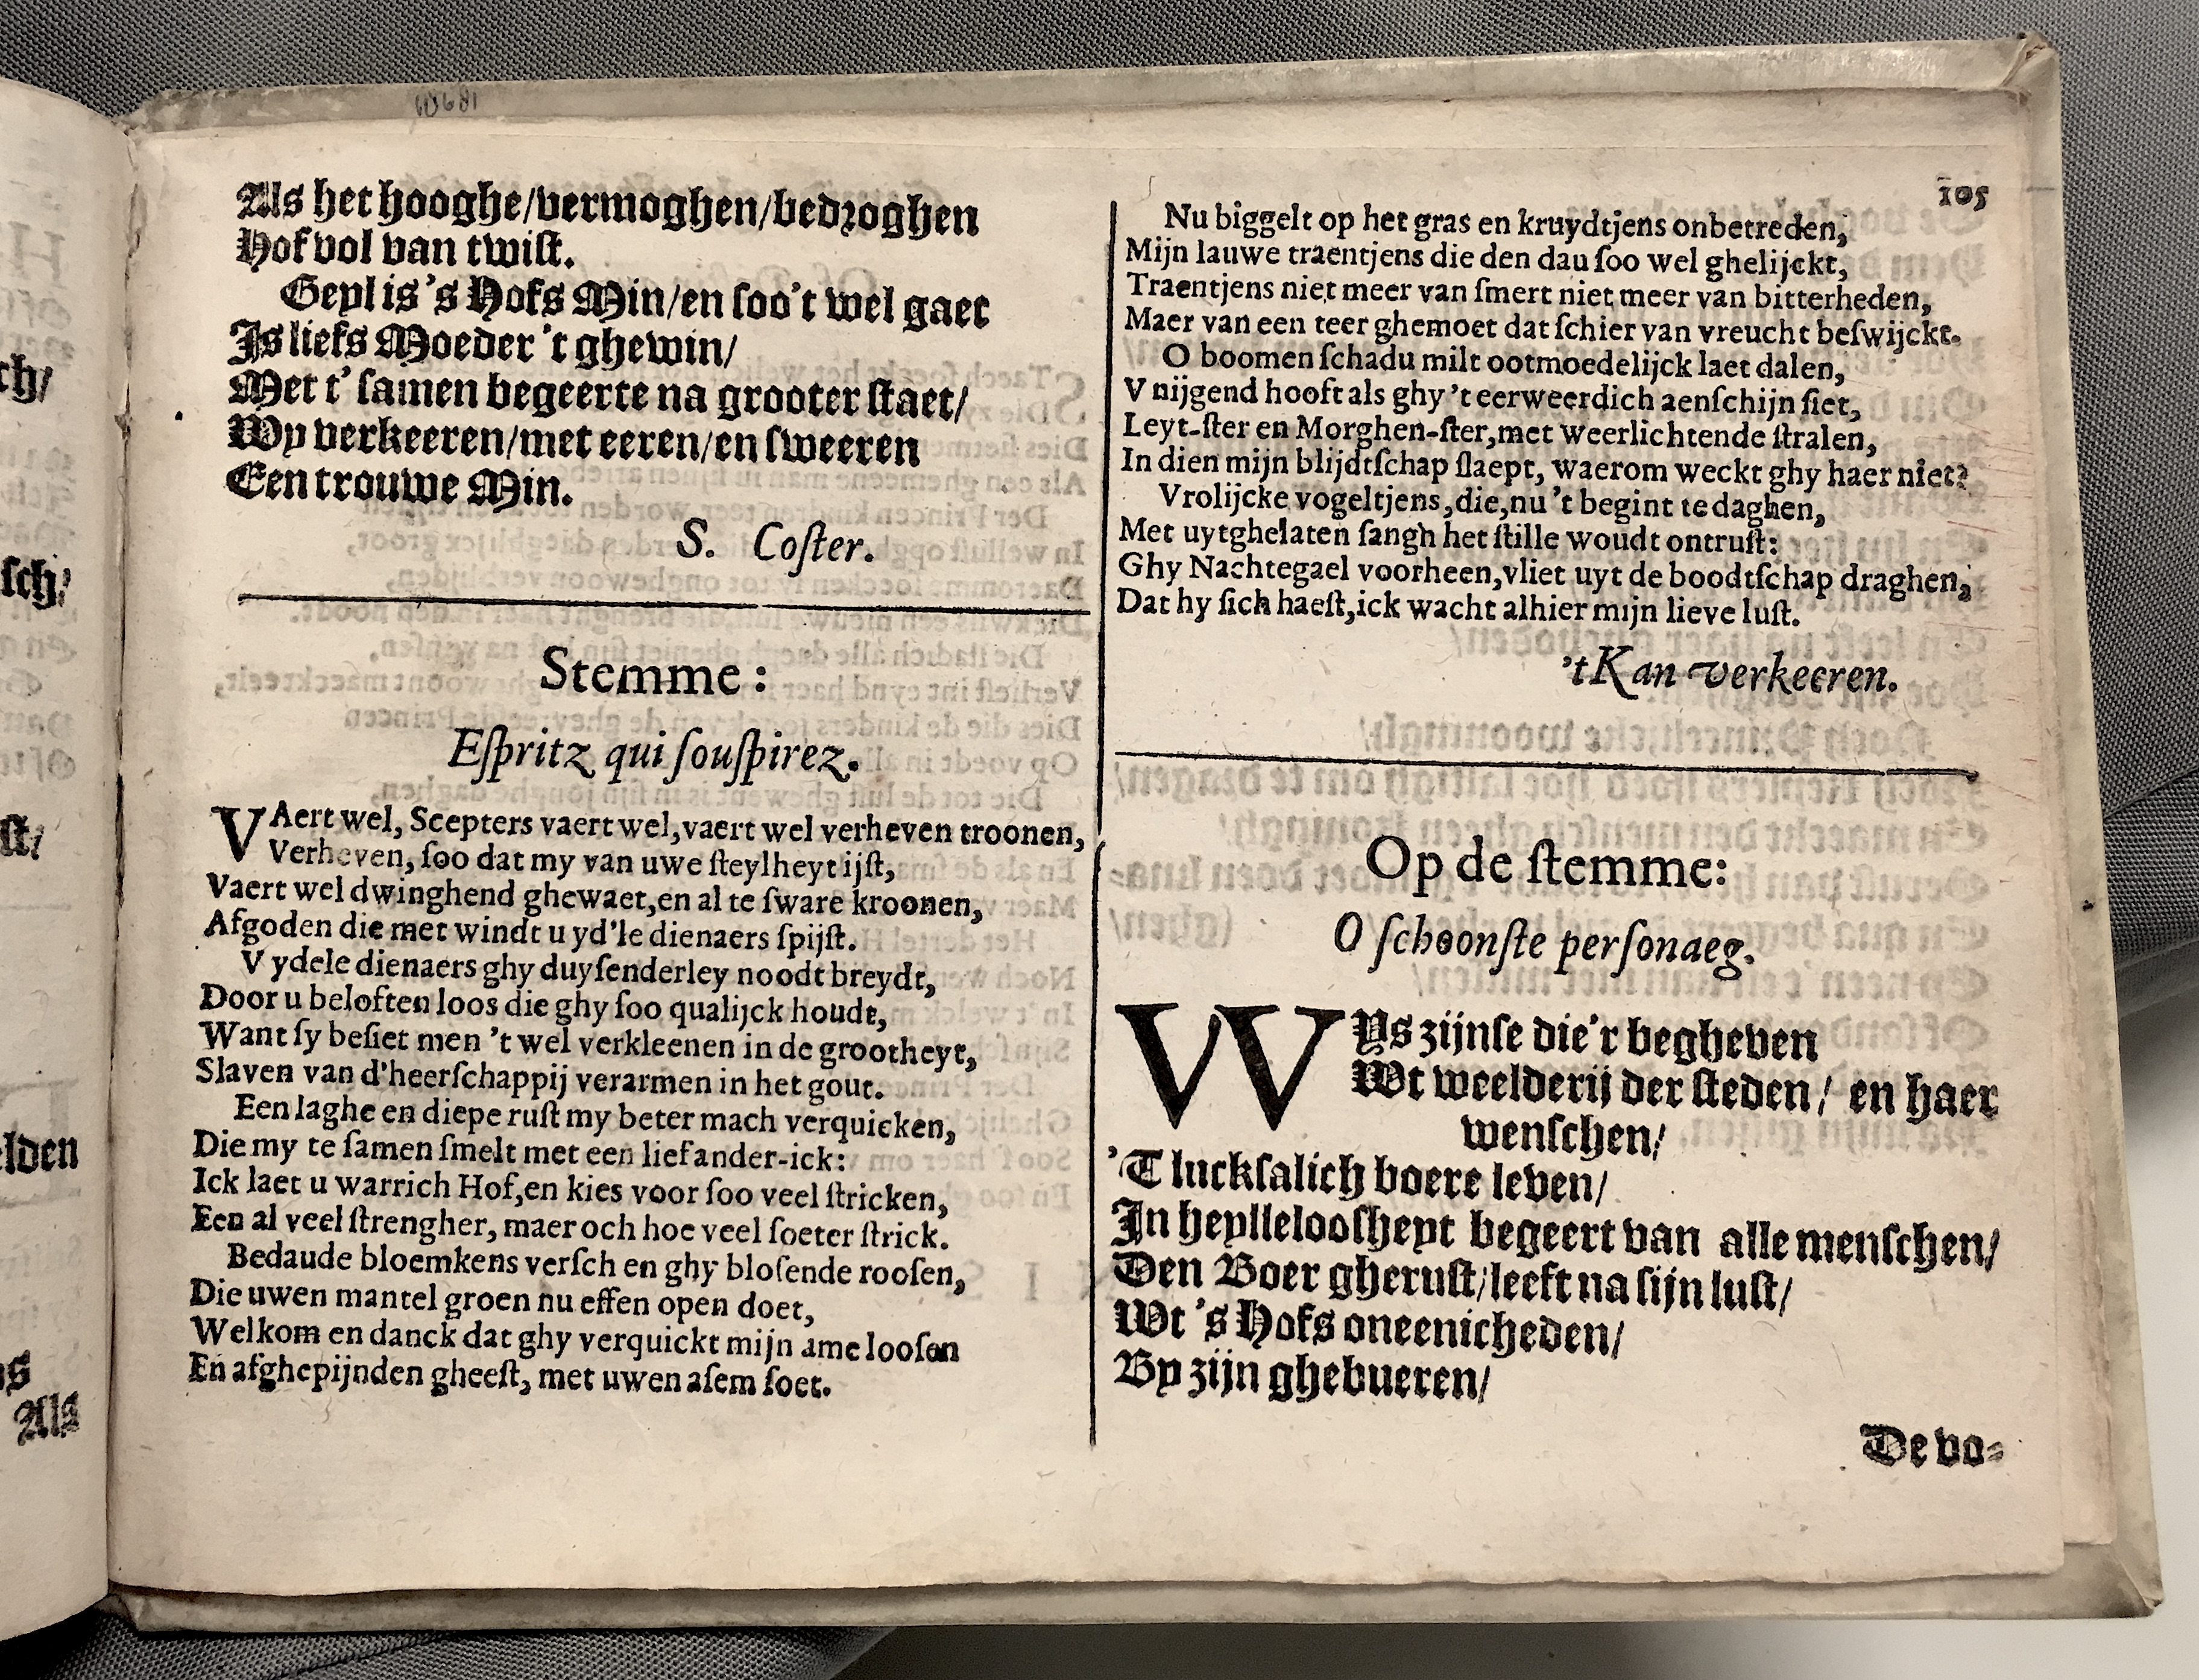 Als het hooghe/vermoghen/bedroghen
Hof vol van twist.
Geyl is 's Hofs Min/en soo't wel gaet
Is liefs Moeder 't ghewin/
Met t' samen begeerte na grooter staet/
Wy verkeeren/met eeren/en sweeren
Een trouwe Min.
S. Coster.
Stemme:
Espritz qui souspirez.
VAert wel, Scepters vaert wel, vaert wel verheven troonen,
Verheven, soo dat my van uwe steylheyt ijst,
Vaert wel dwinghend ghewaet, en al te sware kroonen,
Afgoden die met windt u yd'le dienaers spijst.
V ydele dienaers ghy duysenderley noodt breydt,
Door u beloften loos die ghy soo qualijck houdt,
Want sy besiet men 't wel verkleenen in de grootheyt,
Slaven van d'heerschappij verarmen in het gout.
Een laghe en diepe rust my beter mach verquicken,
Die my te samen smelt met een lief ander-ick:
Ick laet u warrich Hof, en kies voor soo veel stricken,
Een al veel strengher, maer och hoe veel soeter strick.
Bedaude bloemkens versch en ghy blosende roosen,
Die uwen mantel groen nu effen open doet,
Welkom en danck dat ghy verquickt mijn ameloosen
En afghepijnden gheest, met uwen asem soet.
105
Nu biggelt op het gras en kruydtjens onbetreden,
Mijn lauwe traentjens die den dau soo wel ghelijckt,
Traentjens niet meer van smert niet meer van bitterheden,
Maer van een teer ghemoet dat schier van vreucht beswijckt.
O boomen schadu milt ootmoedelijck laet dalen,
V nijgend hooft als ghy 't eerweerdich aenschijn siet,
Leyt-ster en Morghen-ster, met weerlichtende stralen,
In dien mijn blijdtschap slaept, waerom weckt ghy haer niet?
Vrolijcke vogeltjens, die, nu 't begint te daghen,
Met uytghelaten sangh het stille woudt ontrust:
Ghy Nachtegael voorheen, vliet uyt de boodtschap draghen,
Dat hy sich haest, ick wacht alhier mijn lieve lust.
't Kan verkeeren.
Op de stemme:
O schoonste personaeg.
WYs zijnse die'r begheven
Wt weelderij der steden/ en haer
wenschen/
'T lucksalich boere leven/
In heylleloosheyt begeert van alle menschen/
Den Boer gherust/leeft na sijn lust/
Wt 's Hofs oneenicheden/
By zijn ghebueren/
De vo-
ch/
sch/
st/
elden
Als